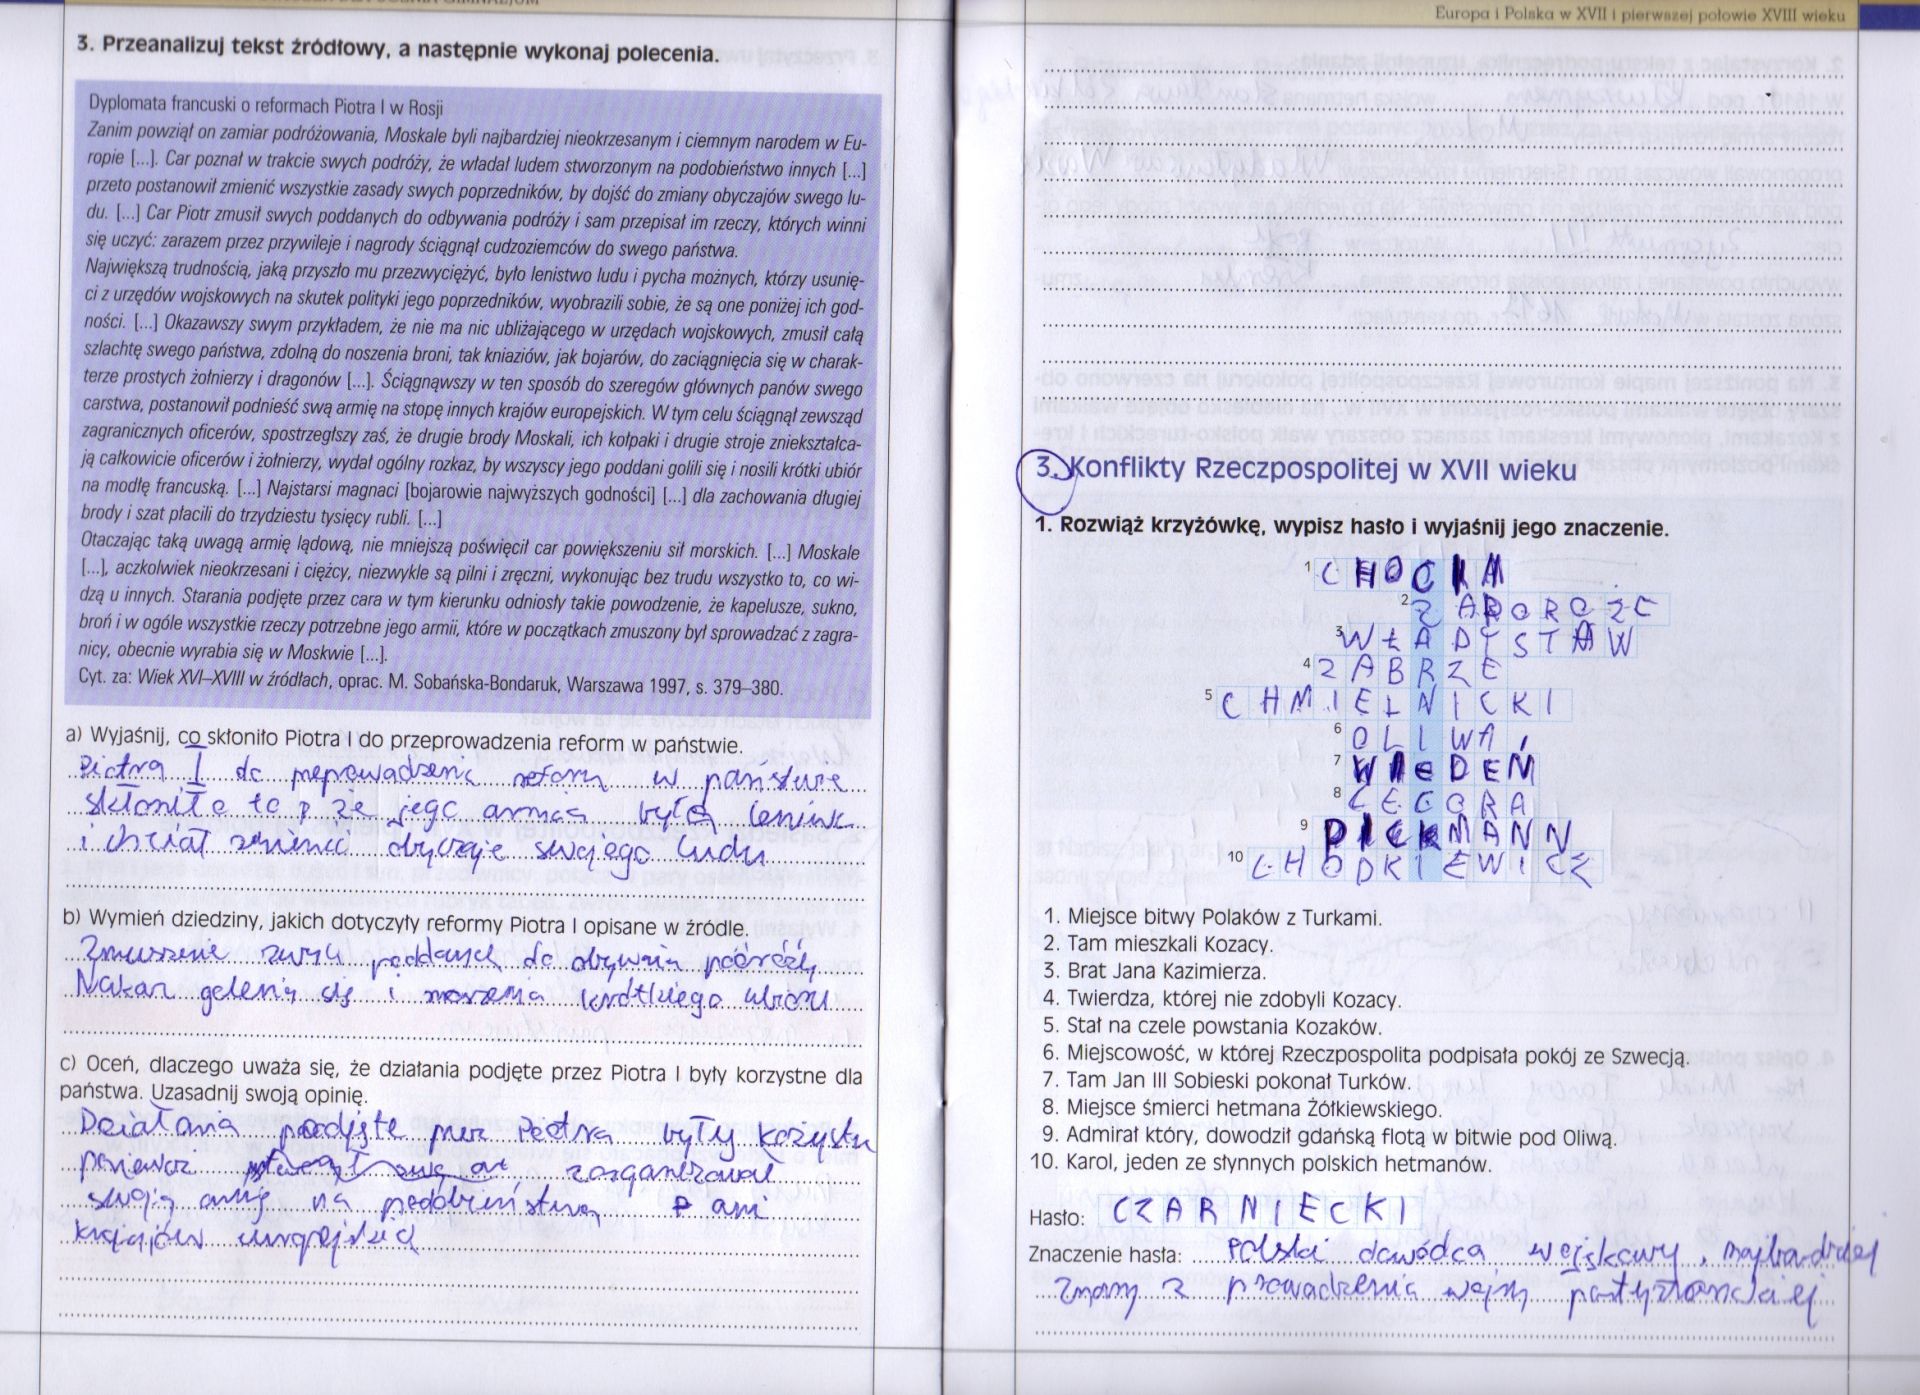 3. Przeanalizuj tekst źródłowy, a następnie wykonaj polecenia.
Dyplomata francuski o reformach Piotra I w Rosji
Zanim powziął on zamiar podróżowania, Moskale byli najbardziej nieokrzesanym i ciemnym narodem w Eu-
ropie [...]. Car poznał w trakcie swych podróży, że władał ludem stworzonym na podobieństwo innych [...]
przeto postanowił zmienić wszystkie zasady swych poprzedników, by dojść do zmiany obyczajów swego lu-
du. [...] Car Piotr zmusił swych poddanych do odbywania podróży i sam przepisał im rzeczy, których winni
się uczyć: zarazem przez przywileje i nagrody ściągnął cudzoziemców do swego państwa.
Największą trudnością, jaką przyszło mu przezwyciężyć, było lenistwo ludu i pycha możnych, którzy usunię-
ci z urzędów wojskowych na skutek polityki jego poprzedników, wyobrazili sobie, że są one poniżej ich god-
ności. [...] Okazawszy swym przykładem, że nie ma nic ubliżającego w urzędach wojskowych, zmusił całą
szlachtę swego państwa, zdolną do noszenia broni, tak kniaziów, jak bojarów, do zaciągnięcia się w charak-
terze prostych żołnierzy i dragonów [...]. Ściągnąwszy w ten sposób do szeregów głównych panów swego
carstwa, postanowił podnieść swą armię na stopę innych krajów europejskich. W tym celu ściągnął zewsząd
zagranicznych oficerów, spostrzegłszy zaś, że drugie brody Moskali, ich kołpaki i drugie stroje zniekształca-
ją całkowicie oficerów i żołnierzy, wydał ogólny rozkaz, by wszyscy jego poddani golili się i nosili krótki ubiór
na modłę francuską. [...] Najstarsi magnaci [bojarowie najwyższych godności] [...] dla zachowania długiej
brody i szat płacili do trzydziestu tysięcy rubli. [...]
Otaczając taką uwagą armię lądową, nie mniejszą poświęcił car powiększeniu sił morskich. [...] Moskale
[...], aczkolwiek nieokrzesani i ciężcy, niezwykle są pilni i zręczni, wykonując bez trudu wszystko to, co wi-
dzą u innych. Starania podjęte przez cara w tym kierunku odniosły takie powodzenie, że kapelusze, sukno,
broń i w ogóle wszystkie rzeczy potrzebne jego armii, które w początkach zmuszony był sprowadzać z zagra-
nicy, obecnie wyrabia się w Moskwie [...].
Cyt. za: Wiek XVI–XVIII w źródłach, oprac. M. Sobańska-Bondaruk, Warszawa 1997, s. 379–380.
a) Wyjaśnij, co skłoniło Piotra I do przeprowadzenia reform w państwie.
Piotra I do w państwie
skłoniło to że jego armia była
i chciał zmienić obyczaje swojego ludu
b) Wymień dziedziny, jakich dotyczyły reformy Piotra I opisane w źródle.
Zmuszenie swych poddanych do podróży
Nakaz golenia się i noszenia krótkiego ubioru
c) Oceń, dlaczego uważa się, że działania podjęte przez Piotra I były korzystne dla
państwa. Uzasadnij swoją opinię.
Działania podjęte przez Piotra były
ponieważ zorganizował
swoją armię na podobieństwo
Europa i Polska w XVII i pierwszej połowie XVIII wieku
3. Konflikty Rzeczpospolitej w XVII wieku
1. Rozwiąż krzyżówkę, wypisz hasło i wyjaśnij jego znaczenie.
1 CHOCIM
2 ZAPOROŻE
3 WŁADYSŁAW
4 ZABRZE
5 CHMIELNICKI
6 OLIWA
7 WIEDEŃ
8 CECORA
9 DICKMANN
10 CHODKIEWICZ
1. Miejsce bitwy Polaków z Turkami.
2. Tam mieszkali Kozacy.
3. Brat Jana Kazimierza.
4. Twierdza, której nie zdobyli Kozacy.
5. Stał na czele powstania Kozaków.
6. Miejscowość, w której Rzeczpospolita podpisała pokój ze Szwecją.
7. Tam Jan III Sobieski pokonał Turków.
8. Miejsce śmierci hetmana Żółkiewskiego.
9. Admirał który, dowodził gdańską flotą w bitwie pod Oliwą.
10. Karol, jeden ze słynnych polskich hetmanów.
Hasło: CZARNIECKI
Znaczenie hasła: Polski dowódca wojskowy, najbardziej
znany z prowadzenia wojny partyzanckiej